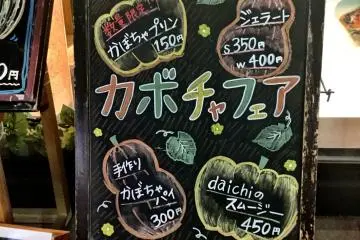 数量限定!
かぼちゃプリン
150円
ジェラート
S 350円
W 400円
カボチャフェア
手作り
かぼちゃパイ
300円
daichiの
スムージー
450円
0円